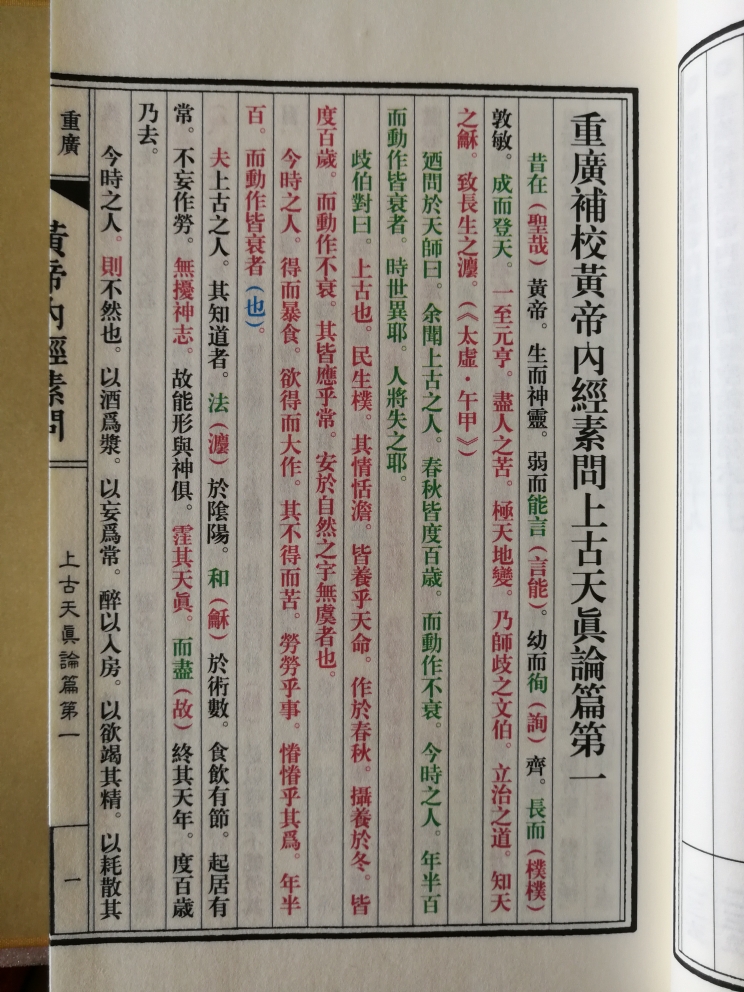 重廣補校黃帝內經素問上古天眞論篇第一
昔在（聖哉）黃帝。生而神靈。弱而能言（言能）。幼而徇（詢）齊。長而（樸樸）
敦敏。成而登天。一至元亨。盡人之苦。極天地變。乃師歧之文伯。立治之道。知天
之龢。致長生之灋。（《太虛·午甲》）
廼問於天師曰。余聞上古之人。春秋皆度百歲。而動作不衰。今時之人。年半百
而動作皆衰者。時世異耶。人將失之耶。
歧伯對曰。上古也。民生樸。其情恬澹。皆養乎天命。作於春秋。攝養於冬。皆
度百歲。而動作不衰。其皆應乎常。安於自然之字無虞者也。
今時之人。得而暴食。欲得而大作。其不得而苦。勞勞乎事。惛惛乎其爲。年半
百。而動作皆衰者（也）。
夫上古之人。其知道者。法（灋）於陰陽。和（龢）於術數。食飲有節。起居有
常。不妄作勞。無擾神志。故能形與神俱。霔其天眞。而盡（故）終其天年。度百歲
乃去。
今時之人。則不然也。以酒爲漿。以妄爲常。醉以入房。以欲竭其精。以耗散其
重廣
黃帝內經素問
上古天眞論篇第一
一